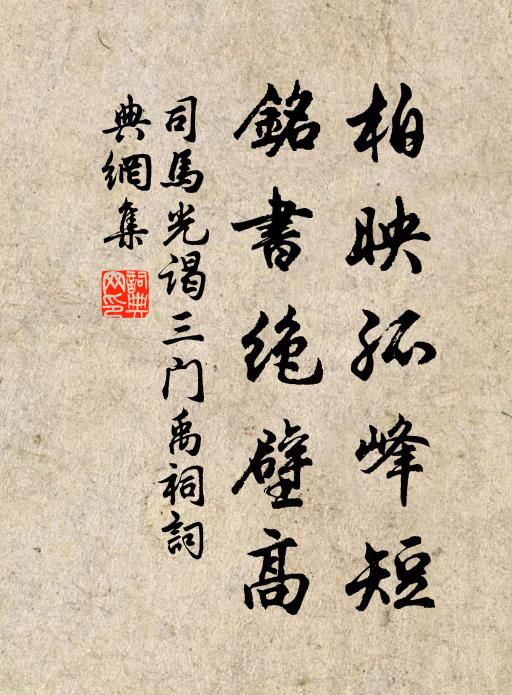 柏映孤峰短
銘書绝壁高
司馬光谒三门禹祠詞
典網集
詞典
网印